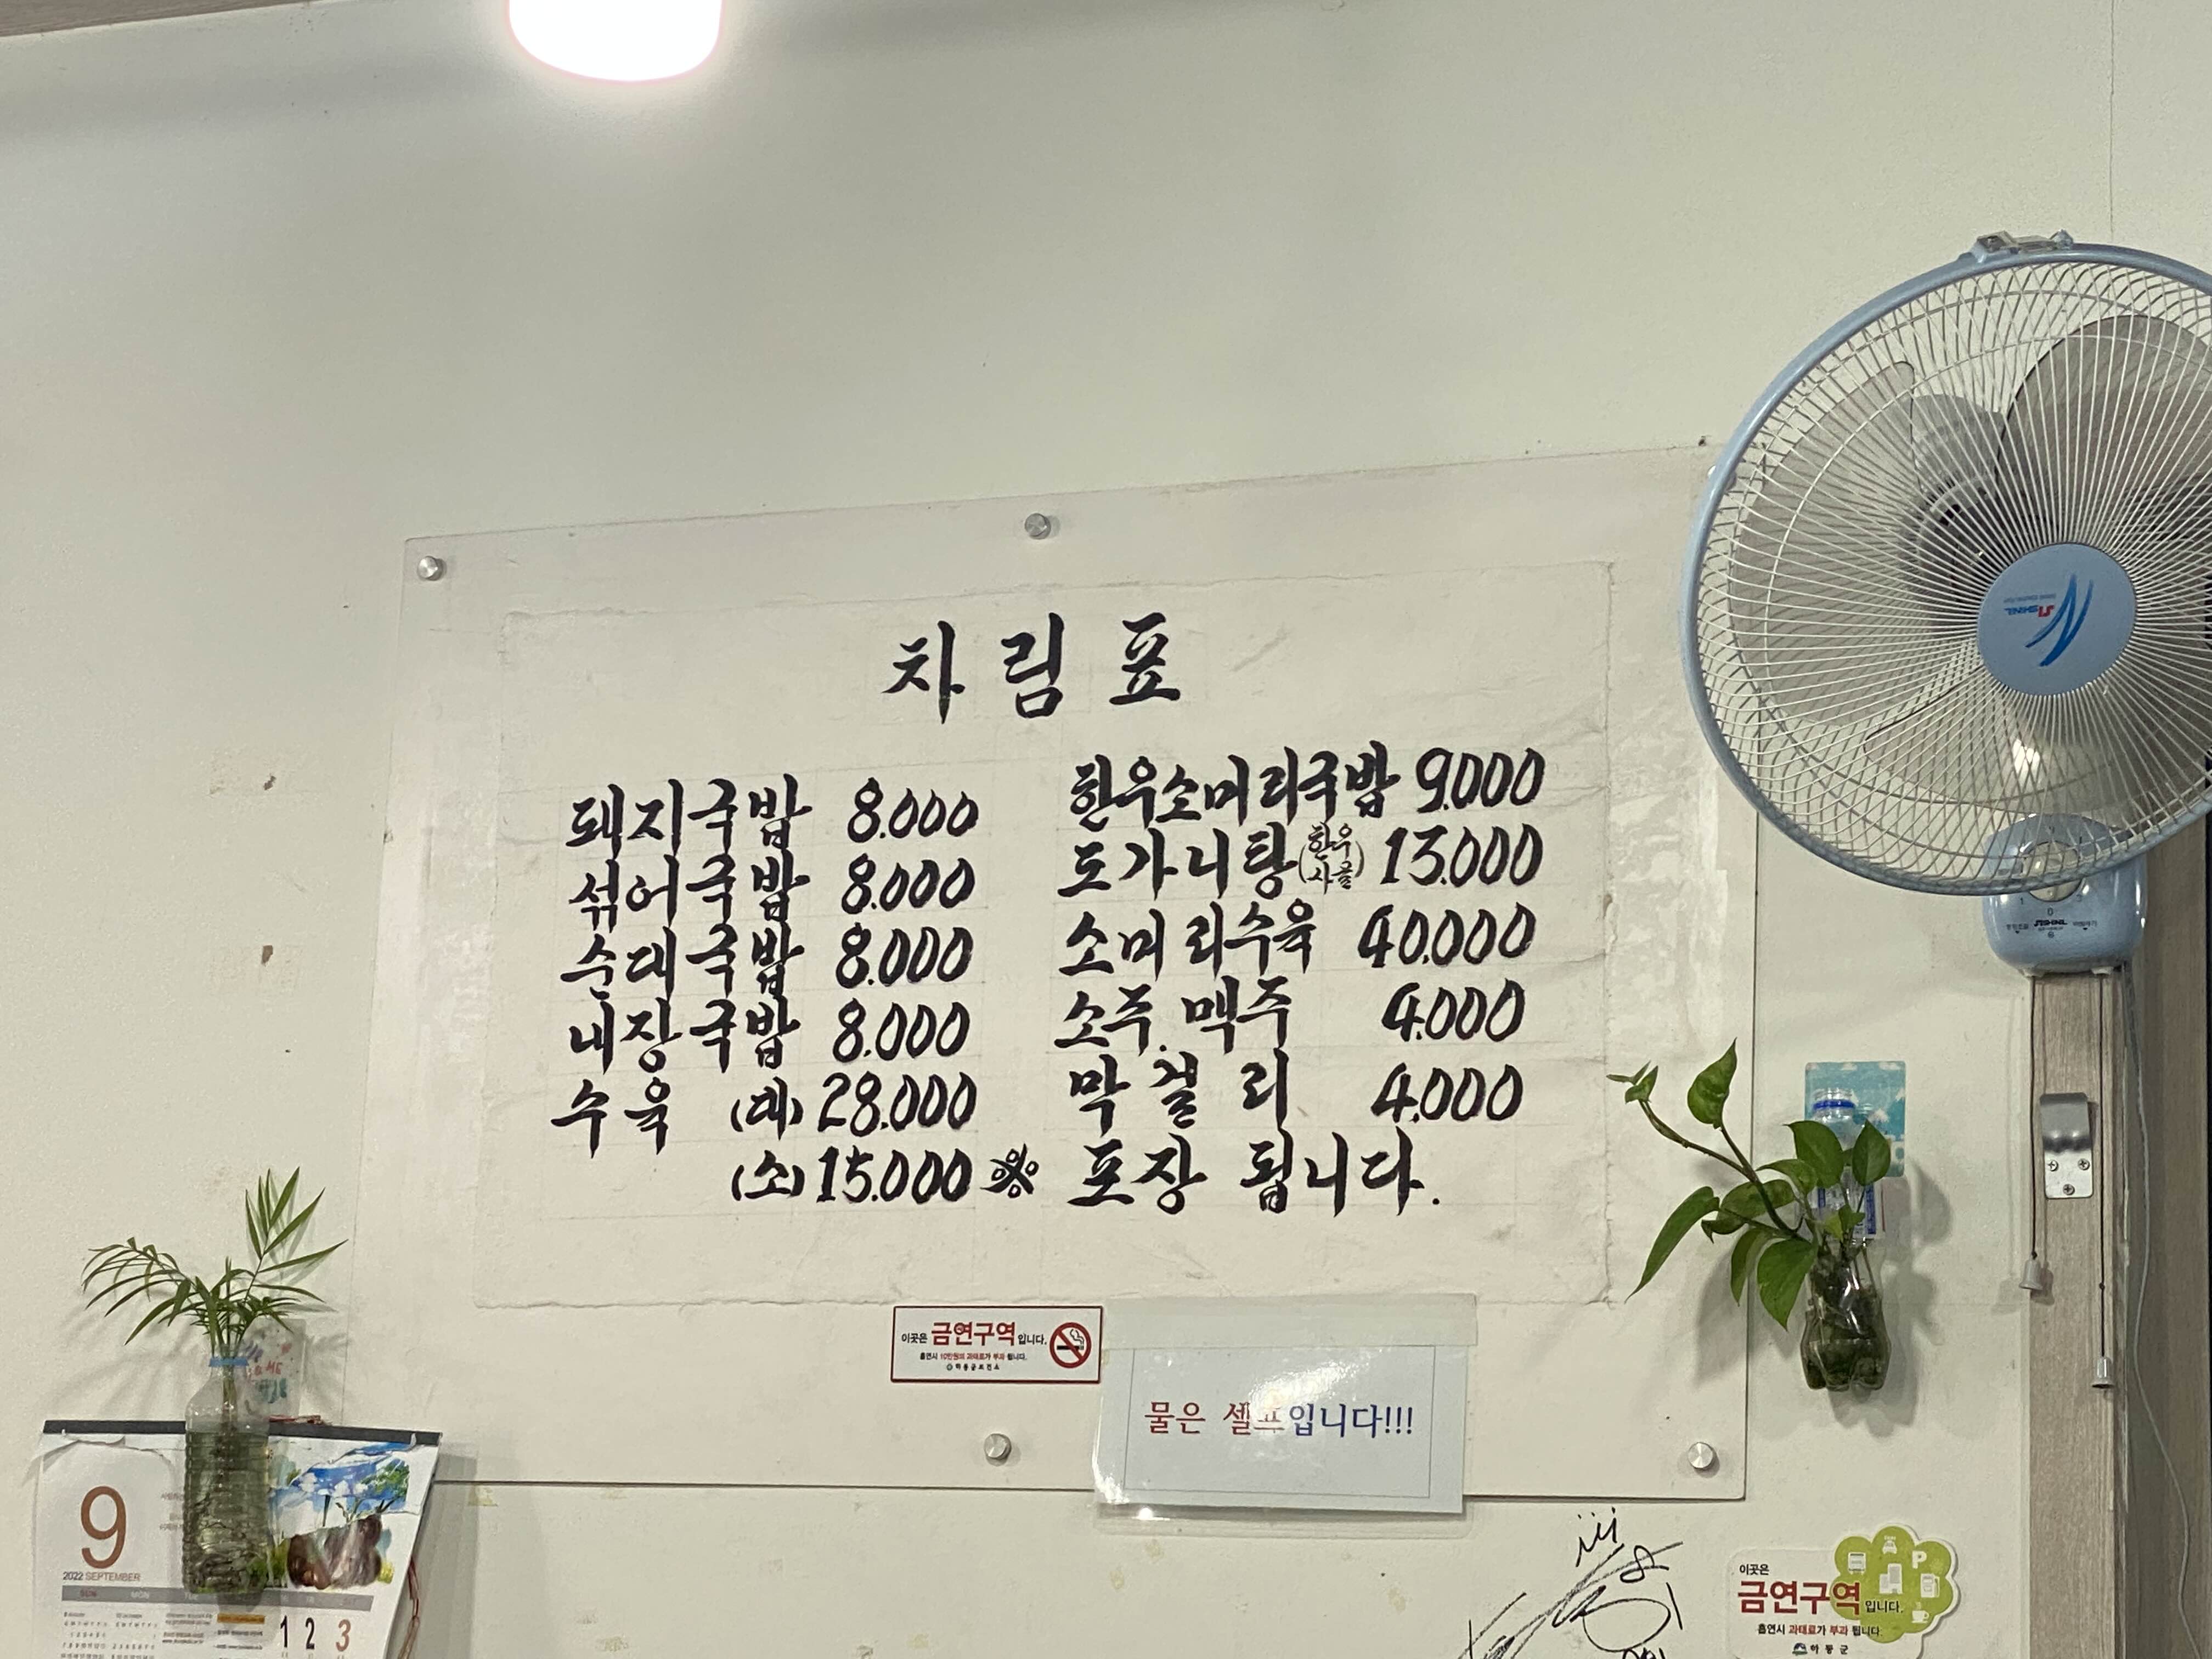 차림표
돼지국밥 8.000
섞어국밥 8.000
순대국밥 8.000
내장국밥 8.000
수육 (대) 28.000
(소) 15.000
한우소머리국밥 9.000
도가니탕(한우사골) 13.000
소머리수육 40.000
소주.맥주 4.000
막걸리 4.000
※ 포장 됩니다.
이곳은 금연구역입니다.
흡연시 10만원의 과태료가 부과 됩니다.
하동군보건소
물은 셀프입니다!!!
9
2022 SEPTEMBER
SUN MON
1 2 3
SHINIL
이곳은
금연구역입니다.
흡연시 과태료가 부과 됩니다.
하동군
P